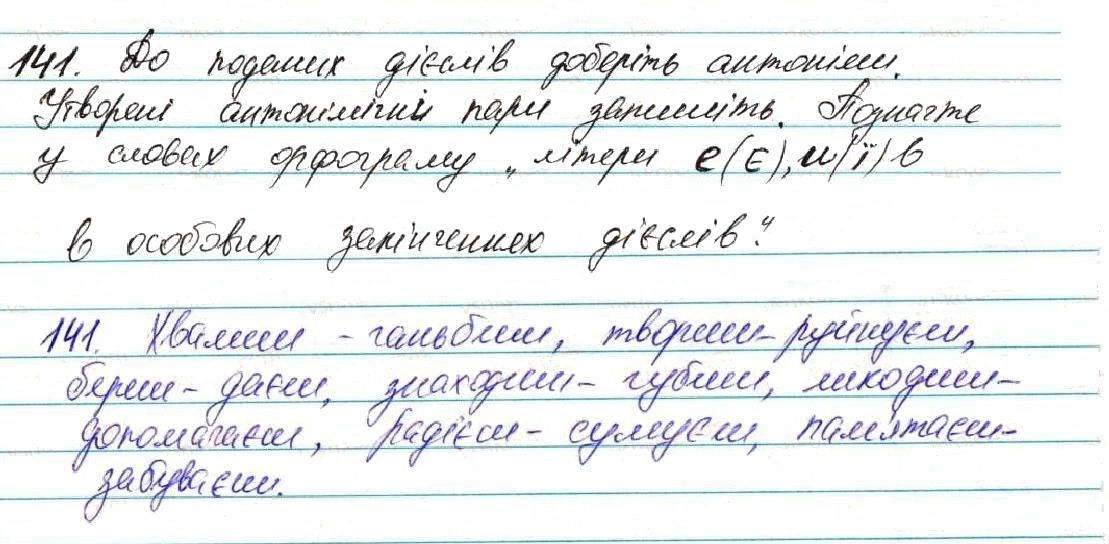 141. До поданих дієслів доберіть антоніми.
Утворені антонімічні пари запишіть. Позначте
у словах орфограму „літери е(є), и(ї) в
в особових закінченнях дієслів".
141. Хвалиш - ганьбиш, твориш - руйнуєш,
береш - даєш, знаходиш - губиш, шкодиш -
допомагаєш, радієш - сумуєш, памятаєш -
забуваєш.